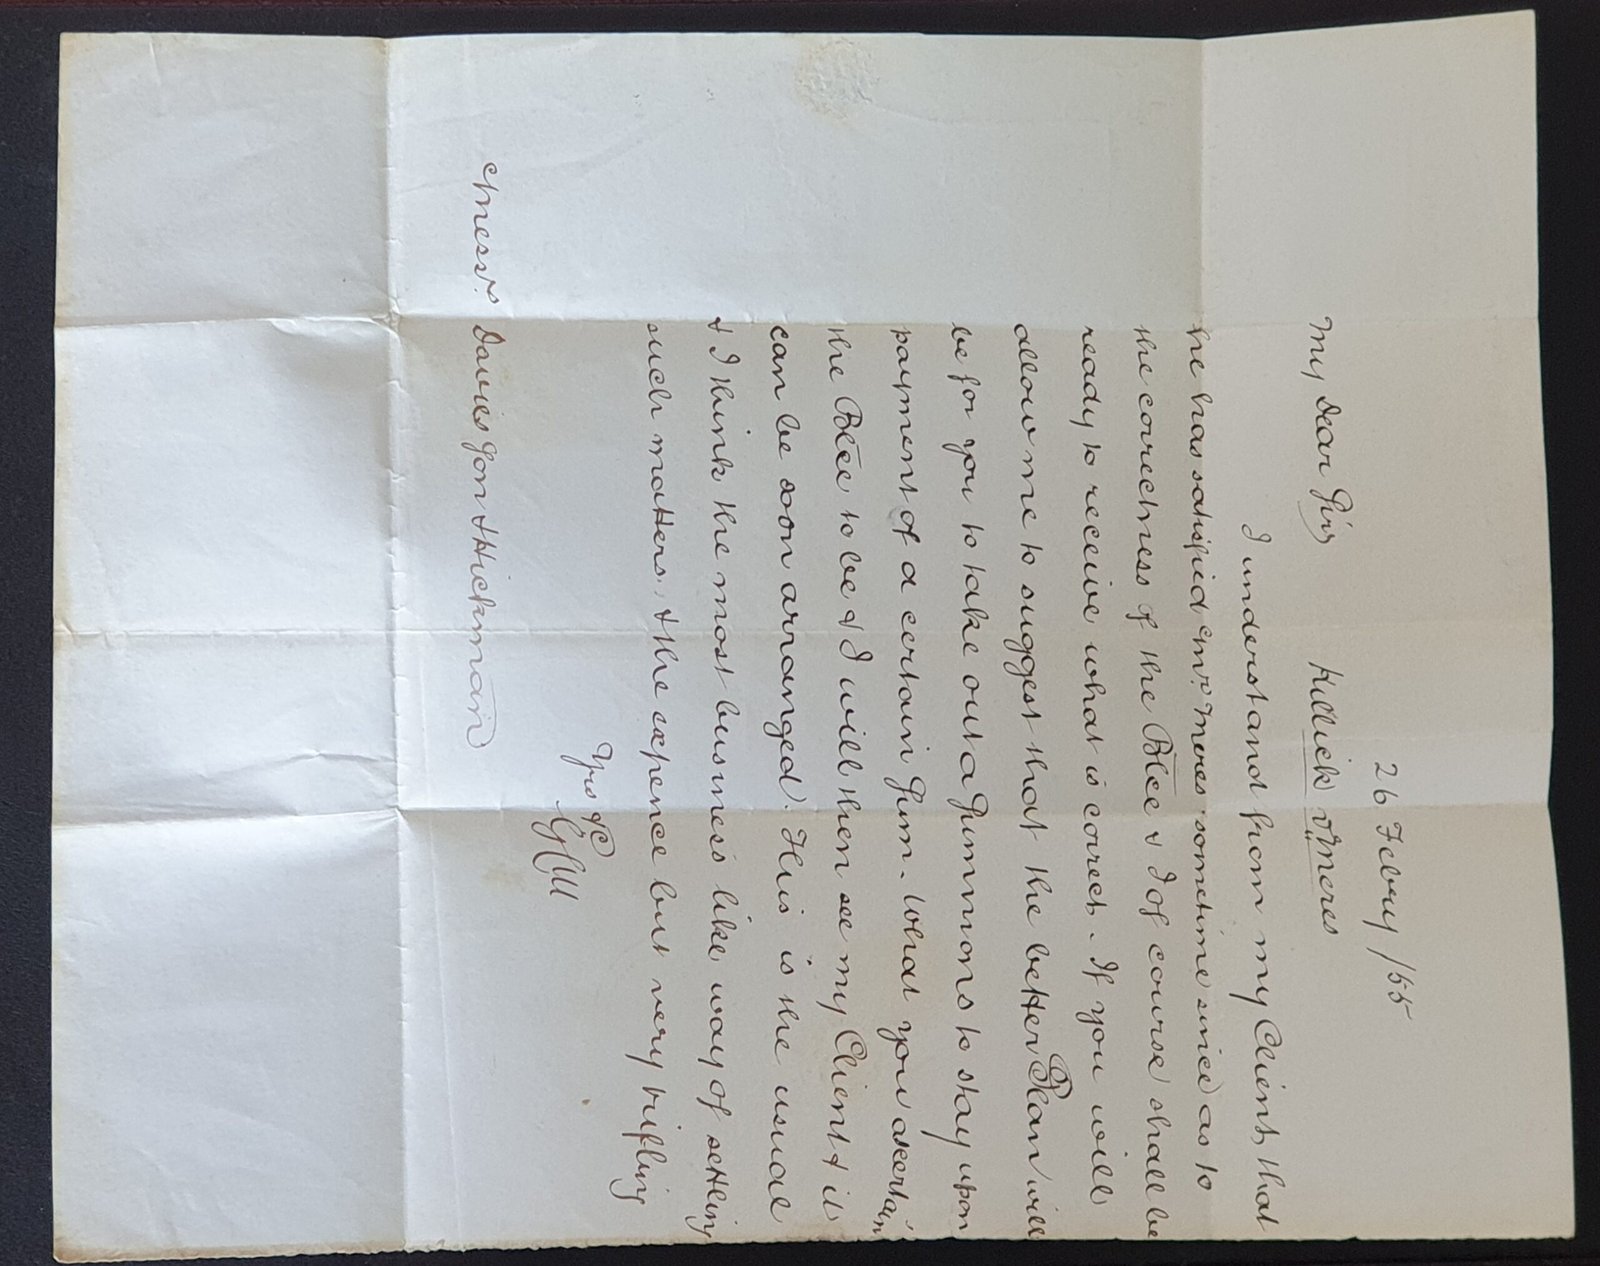 26 Febury /55
My Dear Sirs Killick v Meres
I understand from my Client, that
he has satisfied Mr. Meres sometime since as to
the correctness of the Blce & I of course shall be
ready to receive what is correct. If you will
allow me to suggest that the better Plan will
be for you to take out a Summons to stay upon
payment of a certain Sum. What you ascertain
the Blce to be & I will then see my Client & it
can be soon arranged. This is the usual
& I think the most business like way of settling
such matters, & the expence but very trifling
Yrs &c
Messrs. Davies Son & Hickman